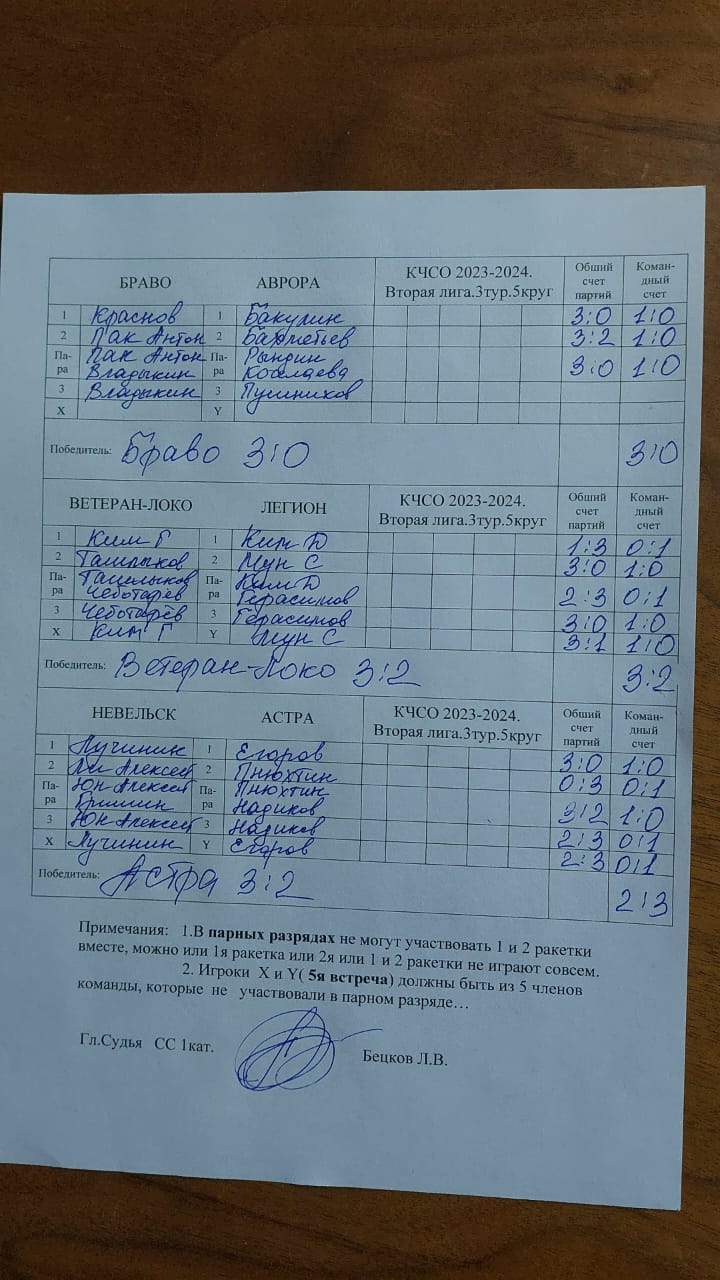 БРАВО АВРОРА КЧСО 2023-2024. Вторая лига.3тур.5круг Общий счет партий Коман-дный счет
1 Краснов 1 Бакулин 3:0 1:0
2 Пак Антон 2 Бахметьев 3:2 1:0
Па-ра Пак Антон Па-ра Рындин
Владыкин 3:0 1:0
3 Владыкин 3 Пушников
X Y
Победитель: Браво 3:0 3:0
ВЕТЕРАН-ЛОКО ЛЕГИОН КЧСО 2023-2024. Вторая лига.3тур.5круг Общий счет партий Коман-дный счет
1 Ким Г 1 Ким Д 1:3 0:1
2 2 Мун С 3:0 1:0
Па-ра Па-ра Ким Д
Чеботарёв Герасимов 2:3 0:1
3 Чеботарёв 3 Герасимов 3:0 1:0
X Ким Г Y Мун С 3:1 1:0
Победитель: Ветеран-Локо 3:2 3:2
НЕВЕЛЬСК АСТРА КЧСО 2023-2024. Вторая лига.3тур.5круг Общий счет партий Коман-дный счет
1 Лучинин 1 Егоров 3:0 1:0
2 Алексей 2 Пнюхтин 0:3 0:1
Па-ра Юн Алексей Па-ра Пнюхтин
Надиков 3:2 1:0
3 Юн Алексей 3 Надиков 2:3 0:1
X Лучинин Y Егоров 2:3 0:1
Победитель: Астра 3:2 2:3
Примечания: 1.В парных разрядах не могут участвовать 1 и 2 ракетки
вместе, можно или 1я ракетка или 2я или 1 и 2 ракетки не играют совсем.
2. Игроки X и Y( 5я встреча) должны быть из 5 членов
команды, которые не участвовали в парном разряде…
Гл.Судья СС 1кат. Бецков Л.В.